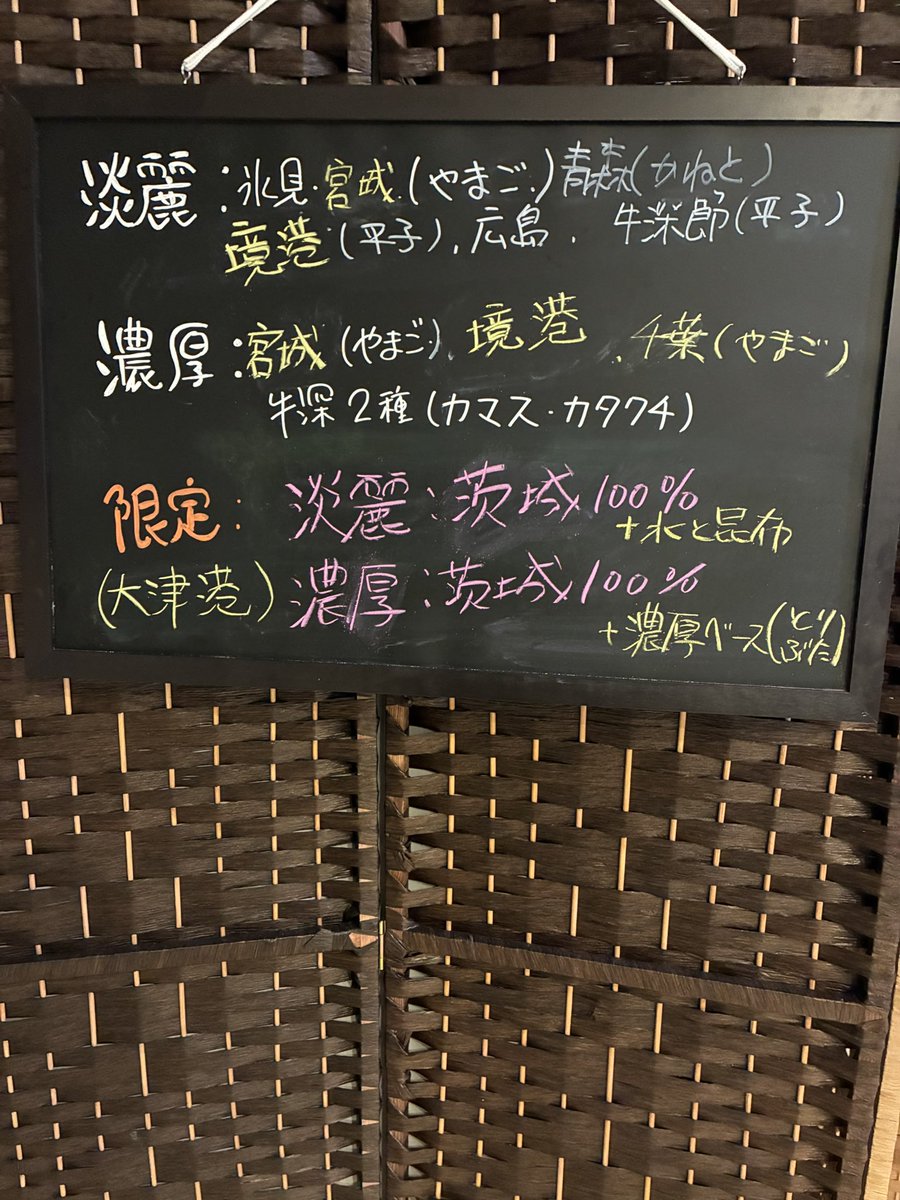 淡麗：氷見・宮城(やまご・)青森(かねと)
境港(平子)、広島、牛深節(平子)
濃厚：宮城(やまご・)、境港、千葉(やまご)
牛深2種(カマス・カタクチ)
限定：淡麗：茨城100%
+水と昆布
(大津港)濃厚：茨城100%
+濃厚ベース(とりぶた)